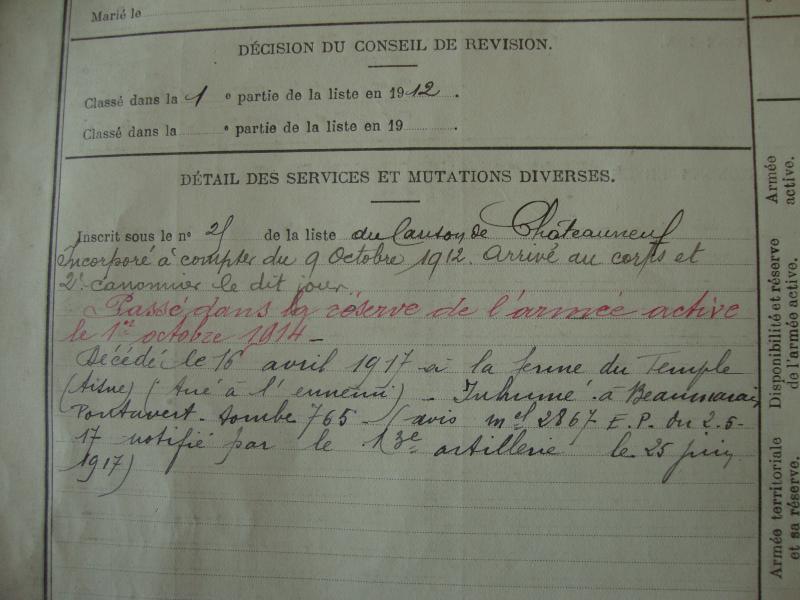 Marié le
DÉCISION DU CONSEIL DE REVISION.
Classé dans la 1 e partie de la liste en 1912.
Classé dans la e partie de la liste en 19 .
DÉTAIL DES SERVICES ET MUTATIONS DIVERSES.
Inscrit sous le n° de la liste du Canton de Châteauneuf
Incorporé à compter du 9 Octobre 1912. Arrivé au corps et
2e canonnier le dit jour.
Passé dans la réserve de l'armée active
le 1er octobre 1914 –
Décédé le 16 avril 1917 à la ferme du Temple
(Aisne) (Tué à l'ennemi) – Inhumé à Beaumarais
Pontavert – tombe 765 – (avis mel 2867 E.P. du 2-5-
17 notifié par le 13e artillerie le 25 juin
1917)
Armée active.
Disponibilité et réserve de l'armée active.
Armée territoriale et sa réserve.